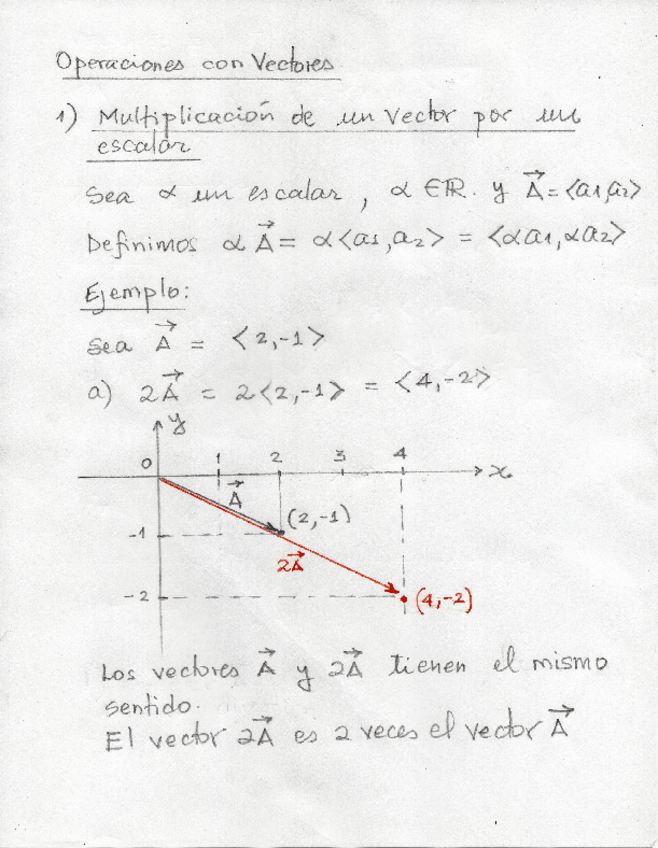 Operaciones con Vectores
1) Multiplicación de un vector por un
escalar
Sea α un escalar, α ∈ ℝ. y A⃗ = <a1,a2>
Definimos α A⃗ = α<a1,a2> = <αa1,αa2>
Ejemplo:
Sea A⃗ = <2,-1>
a) 2A⃗ = 2<2,-1> = <4,-2>
y
0 1 2 3 4 x
A⃗
-1 (2,-1)
2A⃗
-2 (4,-2)
Los vectores A⃗ y 2A⃗ tienen el mismo
sentido.
El vector 2A⃗ es 2 veces el vector A⃗